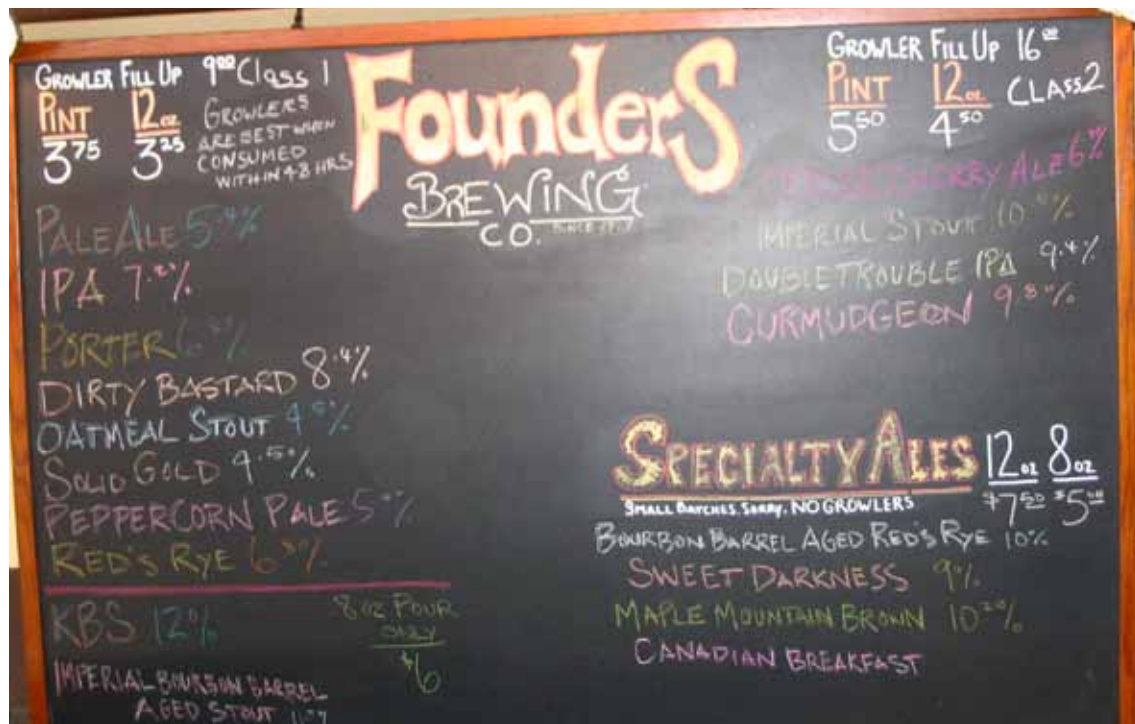 GROWLER FILL UP 9⁰⁰ Class 1
PINT 12oz
3⁷⁵ 3²⁵
GROWLERS
ARE BEST WHEN
CONSUMED
WITHIN 48 HRS
PALE ALE 5.4%
IPA 7.2%
PORTER 6
DIRTY BASTARD 8.4%
OATMEAL STOUT
SOLID GOLD 4.5%
PEPPERCORN PALE 5
RED'S RYE 6
KBS 12%
8oz POUR
ONLY
$6
IMPERIAL BOURBON BARREL
AGED STOUT
FounderS
BREWING
CO.
GROWLER FILL UP 16⁰⁰
PINT 12oz CLASS 2
5⁵⁰ 4⁵⁰
CHERRY ALE 6
IMPERIAL STOUT 10
DOUBLE TROUBLE IPA 9.4%
CURMUDGEON 9.8%
SPECIALTY ALES 12oz 8oz
SMALL BATCHES. SORRY, NO GROWLERS $7⁵⁰ $5⁰⁰
BOURBON BARREL AGED RED'S RYE 10%
SWEET DARKNESS 9%
MAPLE MOUNTAIN BROWN 10.2%
CANADIAN BREAKFAST